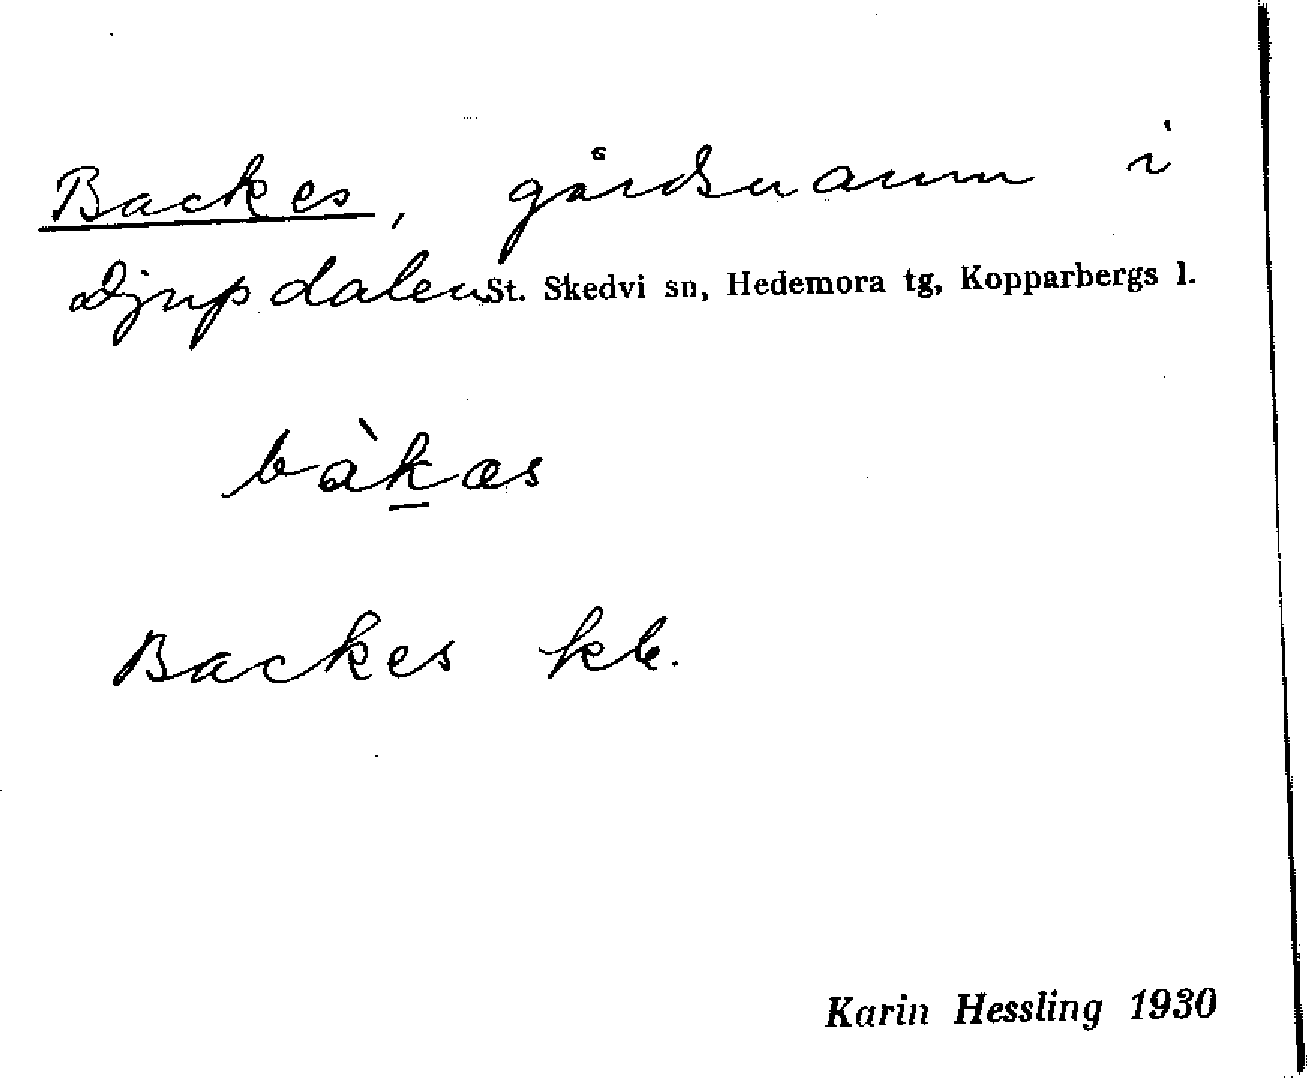 Backes, gårdsnamn i
Djupdalen St. Skedvi sn, Hedemora tg, Kopparbergs l.
bàk̲æs
Backes kb.
Karin Hessling 1930